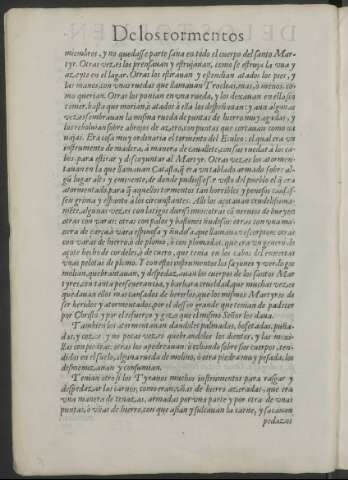 De los tormentos
miembros, y no quedasse parte sana en todo el cuerpo del santo Mar-
tyr. Otras vezes los prensauan y estrujauan, como se estruja la vua y
azeyte en el lagar. Otras los estirauan y estendian atados los pies, y
las manos, con vnas ruedas que llamauan Trocleas, mas, ò menos, co-
mo querian. Otras los ponian en vna rueda, y los dexauan en ella, sin
comer, hasta que morian, ò atados à ella los despeñauan: y aun algunas
vezes sembrauan la misma rueda de puntas de hierro muy agudas, y
los reboluian sobre abrojos de azero, con puntas que cortauan como na
uajas. Era cosa muy ordinaria el tormento del Eculeo: el qual era vn
instrumento de madera, à manera de cauallete, con sus ruedas à los ca-
bos, para estirar y descoyuntar al Martyr. Otras vezes los atormen-
tauan en la que llamauan Catasta, q̃ era vn tablado armado sobre al-
gũ lugar alto y eminente, de donde pudiesse ser visto del pueblo el q̃ era
atormentado, para q̃ aquellos tormentos tan horribles y penosos causas-
sen grima y espanto à los circunstantes. Alli los açotauan crudelissima-
mẽte, algunas vezes con latigos durissimos: otras cõ nieruos de bueyes
otras con varas: otras con palos y bastones ñudosos: otras con vna ma-
nera de çarça ò vara espinosa y ñudosa, que llamauan escorpion: otras
con varas de hierro, ò de plomo, ò con plomadas, que era vn genero de
açote hecho de cordeles, ò de cuero, que tenia en los cabos del remates
vnas pelotas de plomo. Y con estos instrumentos los sayones y verdugos
molian, quebrantauan, y despedaçauan los cuerpos de los santos Mar
tyres, con tanta perseuerancia, y barbara crueldad, que muchas vezes
quedauan ellos mas cansados de herirlos, que los mismos Martyres de
ser heridos y atormentados, por el desseo grande que tenian de padecer
por Christo, y por el esfuerço y gozo que el mismo Señor les daua.
Tambien los atormentauan dandoles palmadas, bofetadas, puña-
das, y cozes: y no pocas vezes quebrandoles los dientes, y las mexi-
llas con piedras: otras los apedreauan: ò echando sobre sus cuerpos, ten-
didos en el suelo, alguna rueda de molino, ò otra piedra muy pesada, los
desmenuzauan y consumian.
Tenian otro si los Tyranos muchos instrumentos para rasgar y
despedaçar las carnes, como eran, vñas de hierro azeradas, que era
vna manera de tenazas, armadas por vna parte y por otra de vnas
puntas, ò vñas de hierro, con que asian y sulcauan la carne, y sacauan
pedazos